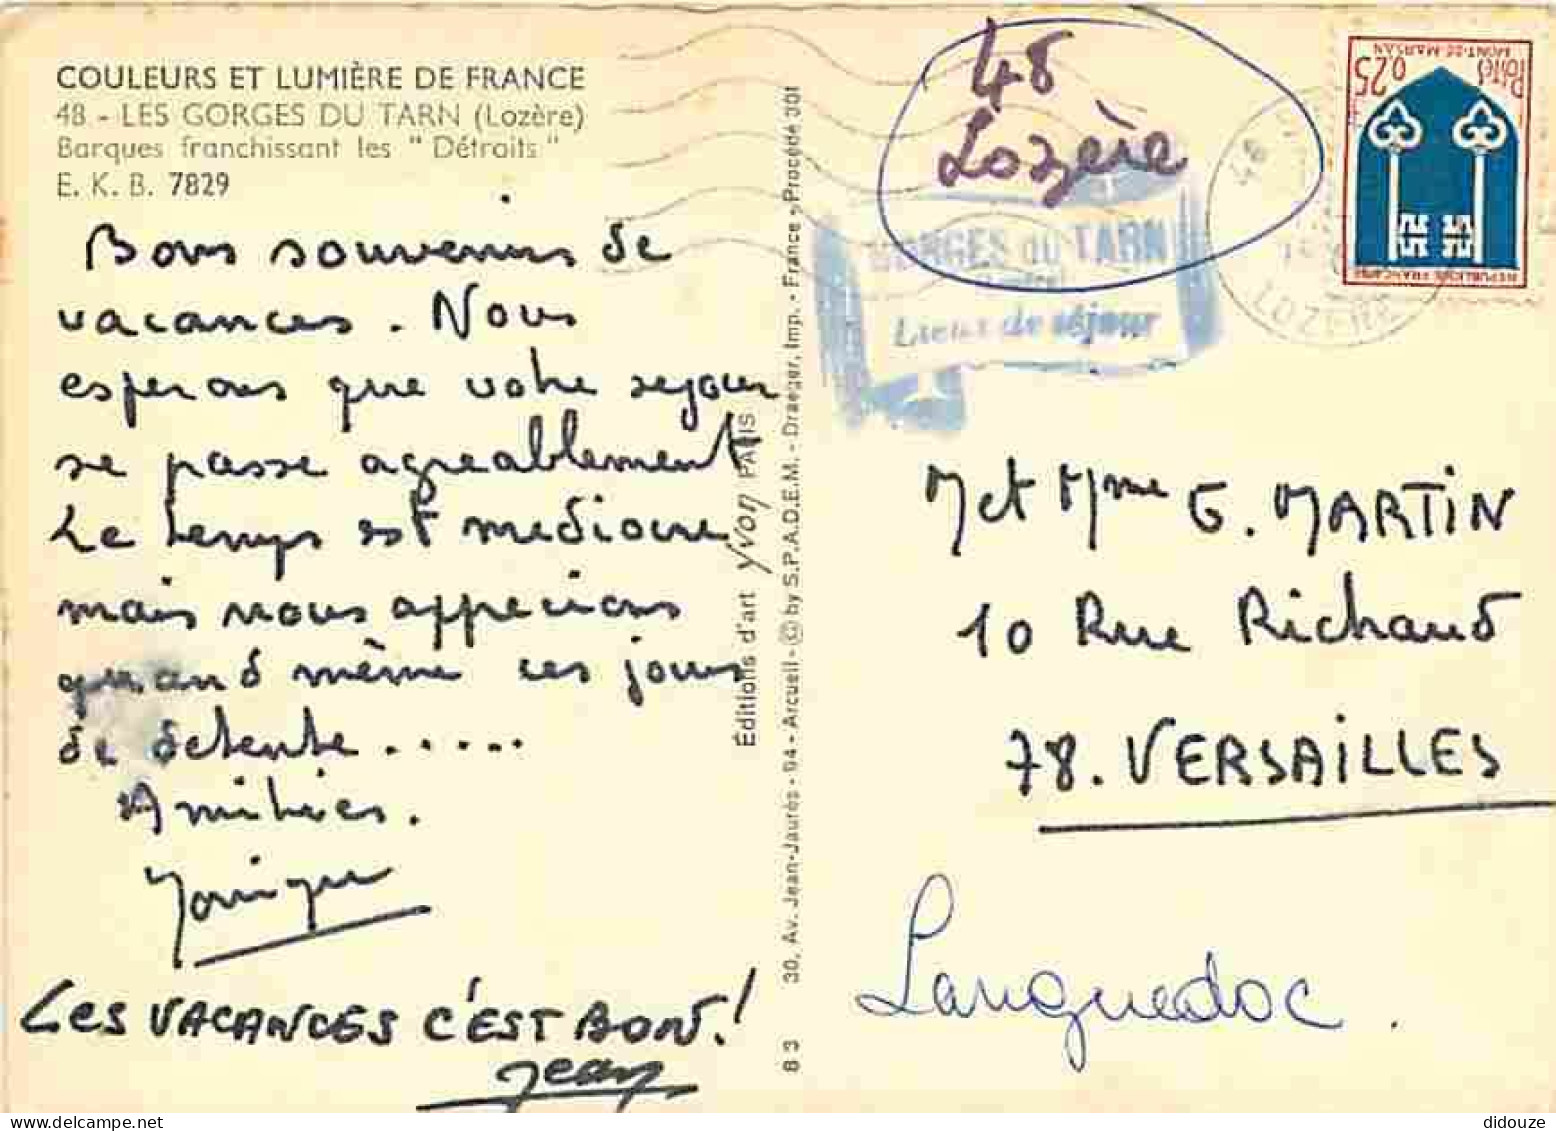 COULEURS ET LUMIÈRE DE FRANCE
48 - LES GORGES DU TARN (Lozère)
Barques franchissant les " Détroits "
E. K. B. 7829
Bons souvenirs de
vacances. Nous
esperons que votre sejour
se passe agreablement
Le temps est mediocre
mais nous apprecions
quand même ces jours
de detente.....
Amitiés.
Monique
LES VACANCES C'EST BON!
Jean
Éditions d'art Yvon PARIS
30, Av. Jean-Jaurès - 94 - Arcueil - © by S.P.A.D.E.M. - Draeger, Imp. - France - Procédé 301
83
48
Lozère
GORGES DU TARN
Lieux de séjour
48
LOZÈRE
MONT-DE-MARSAN
Postes
0,25
REPUBLIQUE FRANÇAISE
M et Mme G. MARTIN
10 Rue Richaud
78. VERSAILLES
Languedoc.
didouze